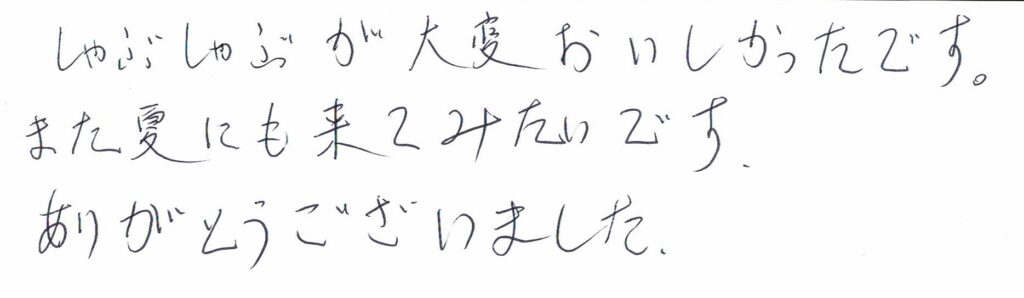 しゃぶしゃぶが大変おいしかったです。
また夏にも来てみたいです.
ありがとうございました.